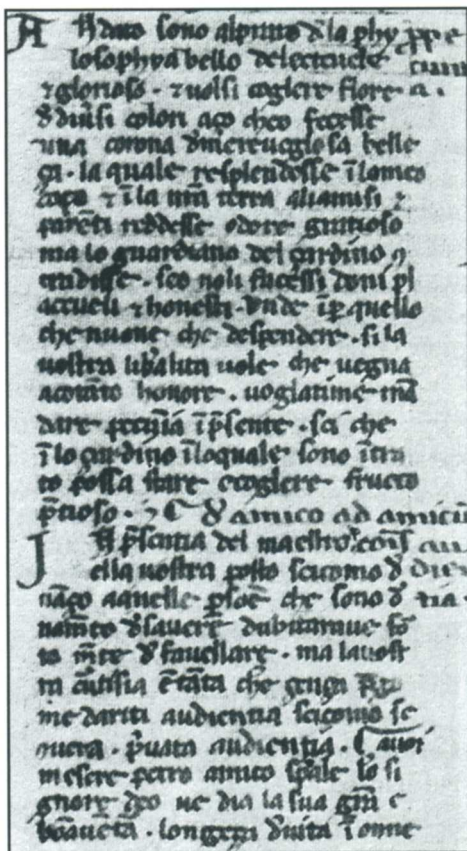 Andato sono alprato d̄la phy
losophya bello delecteuele
⁊glorioso · ⁊uolsi coglere fiore
d̄ diu̓si colori aço cheo fecesse
una corona d̓mereueglosa belle
ça · la quale resplendesse ī lomeo
capo ⁊ ī la nr̄a terra aliamisi ⁊
parēti reddesse odore gratioso
ma lo guardiano del çardino ꝯ
tradisse · seo noli facessi doni pl
aceueli ⁊ honesti · vnde īꝑ quello
che nuone che despendere · si la
uostra lib̓alita uole che uegna
acotāto honore · uogliatime mā
dare pecunia ī p̄sente · sci che
ī lo çardino īloquale sono ītra
to possa stare ecoglere fructo
p̄tioso · d̄ amico ad amicū
In p̄sentia del maestro
ella uostra posto scicomo d̄
nāço aquelle ꝑsoē che sono d̄
d̄ sauere dubitamue
d̄ fauellare · ma lauost
ra ē tāta che çença
me dariti audientia scicomo se
p̓uata audientia ·
mesere petro amico sp̄ale lo si
gnore deo ue dia la sua gr̄a e
· longeça d̓uita ī onne